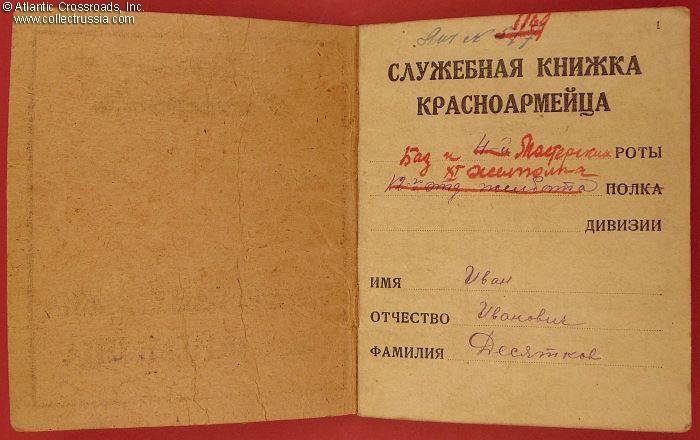 © Atlantic Crossroads, Inc.
www.collectrussia.com
1
СЛУЖЕБНАЯ КНИЖКА
КРАСНОАРМЕЙЦА
4-й РОТЫ
XI
ПОЛКА
ДИВИЗИИ
ИМЯ Иван
ОТЧЕСТВО Иванович
ФАМИЛИЯ Десятков